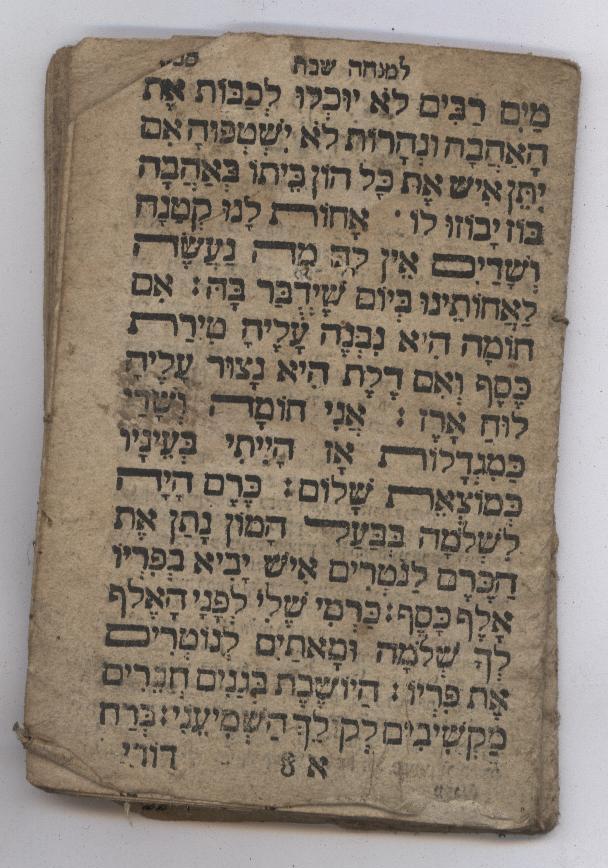 למנחה שבת
מַיִם רַבִּים לֹא יוּכְלוּ לְכַבּוֹת אֶת
הָאַהֲבָה וּנְהָרוֹת לֹא יִשְׁטְפוּהָ אִם
יִתֵּן אִישׁ אֶת כָּל הוֹן בֵּיתוֹ בְּאַהֲבָה
בּוֹז יָבוּזוּ לוֹ · אָחוֹת לָנוּ קְטַנָּה
וְשָׁדַיִם אֵין לָהּ מַה נַּעֲשֶׂה
לַאֲחוֹתֵינוּ בְּיוֹם שֶׁיְדֻבַּר בָּהּ : אִם
חוֹמָה הִיא נִבְנֶה עָלֶיהָ טִירַת
כָּסֶף וְאִם דֶּלֶת הִיא נָצוּר עָלֶיהָ
לוּחַ אָרֶז : אֲנִי חוֹמָה וְשָׁדַי
כַּמִּגְדָּלוֹת אָז הָיִיתִי בְּעֵינָיו
כְּמוֹצְאֵת שָׁלוֹם : כֶּרֶם הָיָה
לִשְׁלֹמֹה בְּבַעַל הָמוֹן נָתַן אֶת
הַכֶּרֶם לַנֹּטְרִים אִישׁ יָבִיא בְּפִרְיוֹ
אֶלֶף כָּסֶף : כַּרְמִי שֶׁלִּי לְפָנָי הָאֶלֶף
לְךָ שְׁלֹמֹה וּמָאתַיִם לְנוֹטְרִים
אֶת פִּרְיוֹ : הַיּוֹשֶׁבֶת בַּגַּנִּים חֲבֵרִים
מַקְשִׁיבִים לְקוֹלֵךְ הַשְׁמִיעֵנִי : בְּרַח
א 8 דודי